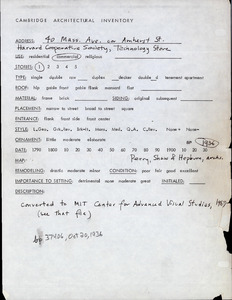 CAMBRIDGE ARCHITECTURAL INVENTORY
ADDRESS: 40 Mass. Ave. on Amherst St.
Harvard Cooperative Society, Technology Store
USE: residential commercial religious
STORIES: 1 2 3 4 5
TYPE: single double row duplex decker double_d tenement apartment
ROOF: hip gable front gable flank mansard flat
MATERIAL: frame brick SIDING: original subsequent
PLACEMENT: narrow to street broad to street square
ENTRANCE: flank front side front center
STYLE: Ital. Mans. Med. Q.A. None
ORNAMENTS: little moderate elaborate BP 1936
DATE: 1790 1800 10 20 30 40 50 60 70 80 90 1900 10 20 30
MAP: Perry, Shaw & Hepburn, archs.
REMODELING: drastic moderate minor CONDITION: poor fair good excellent
IMPORTANCE TO SETTING: detrimental none moderate great INITIALED:
DESCRIPTION:
Converted to MIT Center for Advanced Visual Studies, 1967
(see that file)
bp 37406, Oct 20, 1936